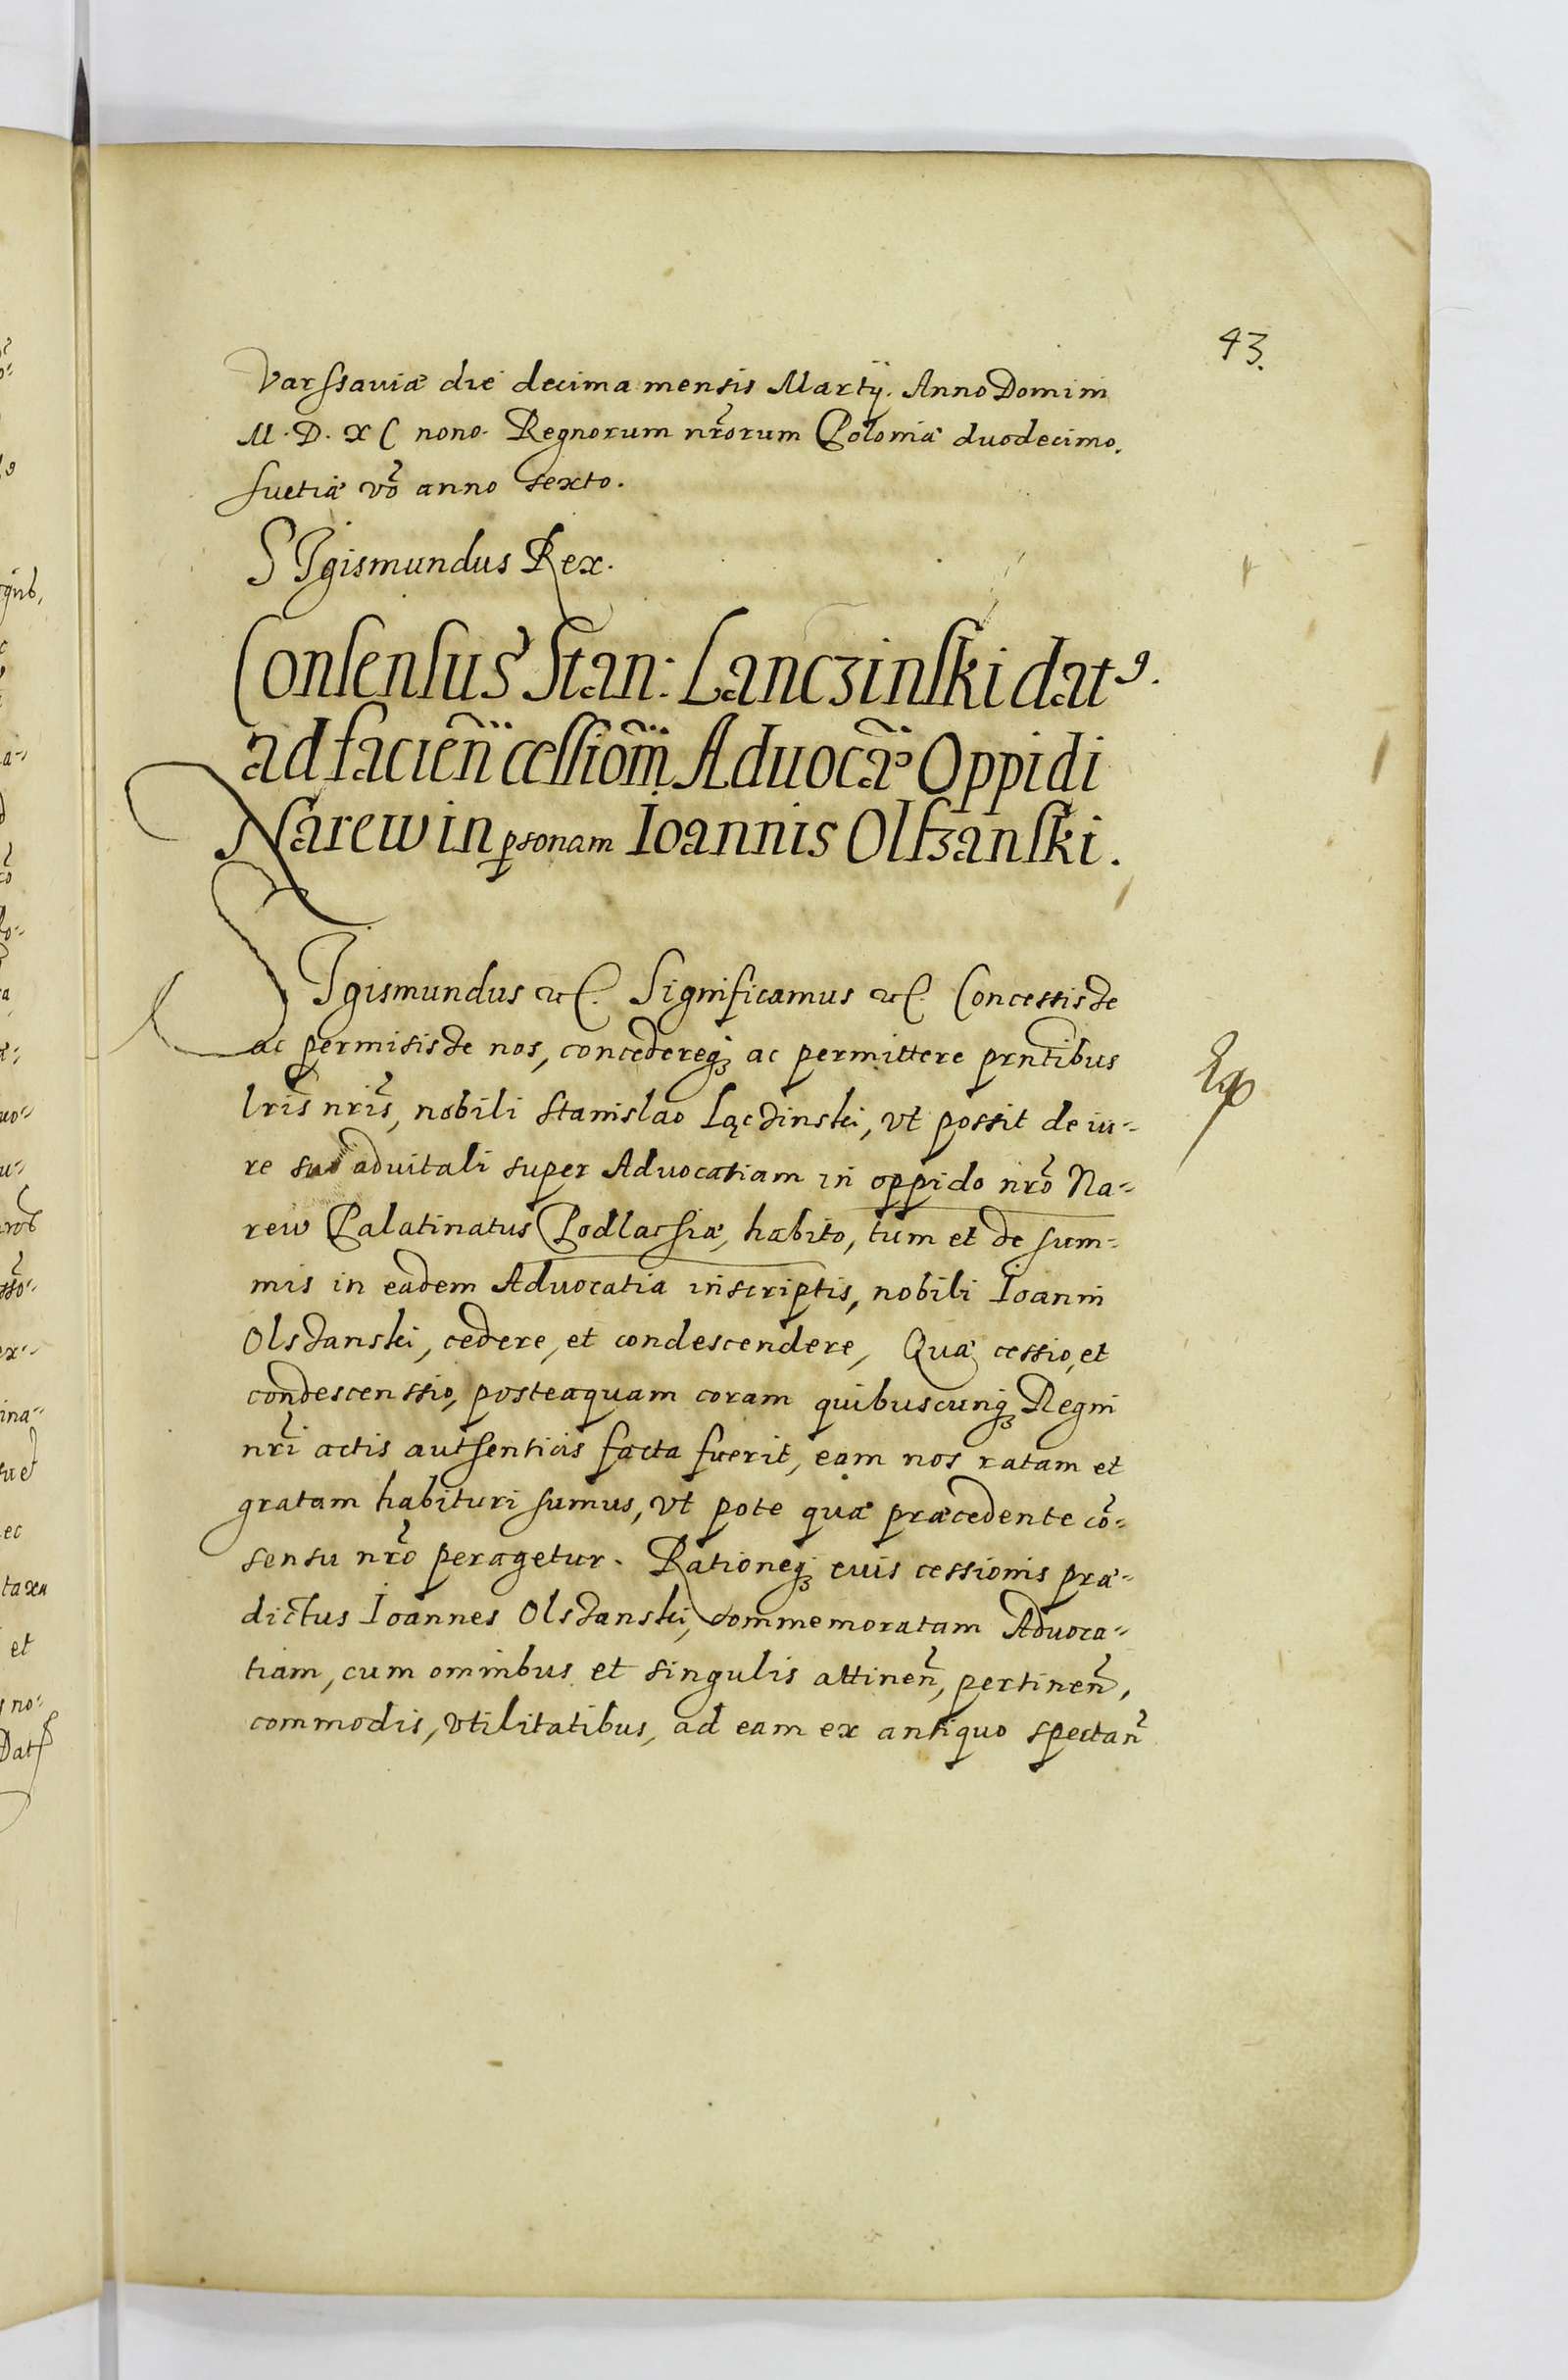 43.
Varssauiæ die decima mensis Martij. Anno Domini
M. D. XC nono. Regnorum nr̃orum Poloniæ duodecimo.
suetiæ vo᷉ anno sexto.
SIgismundus Rex.
Consensus Stan: Lanczinski datꝰ.
ad facien̄ cessiom̃ Aduocãe Oppidi
Narew in ꝑsonam Ioannis Olszanski.
SIgismundus etc. Significamus etc. Concessisse
ac permisisse nos, concedereqꝫ ac permittere prñtibus
lr̃is nr̃is, nobili Stanislao Lączinski, vt possit de iu-
re suo aduitali super Aduocatiam in oppido nr̃o Na-
rew Palatinatus Podlassiæ, habito, tum et de sum-
mis in eadem Aduocatia inscriptis, nobili Ioanni
Olszanski, cedere, et condescendere, Quæ cessio, et
condescenssio, posteaquam coram quibuscunqꝫ Regni
nr̃i actis authenticis facta fuerit, eam nos ratam et
gratam habituri sumus, vt pote quæ præcedente cõ-
sensu nr̃o peragetur. Rationeqꝫ euis cessionis præ-
dictus Ioannes Olszanski, commemoratam Aduoca-
tiam, cum omnibus et singulis attinen̄, pertinen̄,
commodis, vtilitatibus, ad eam ex antiquo spectan̄